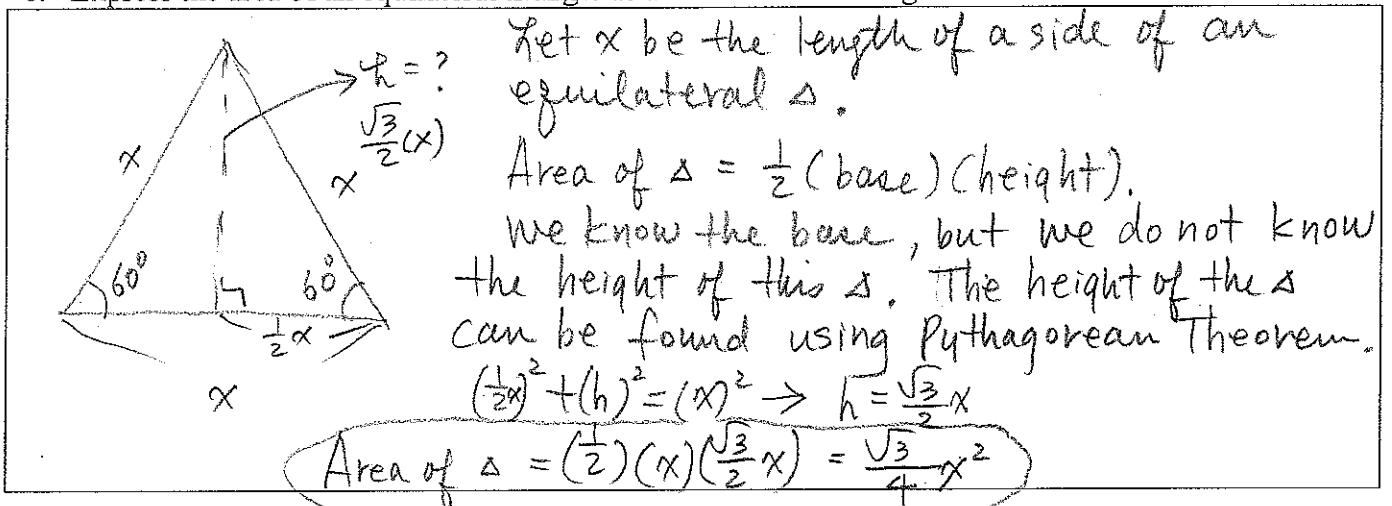 h = ?
√3/2 (x)
x
x
60°
60°
1/2 x
x
Let x be the length of a side of an
equilateral △.
Area of △ = 1/2 (base)(height).
We know the base, but we do not know
the height of this △. The height of the △
can be found using Pythagorean Theorem.
(1/2 x)² + (h)² = (x)² → h = √3/2 x
Area of △ = (1/2)(x)(√3/2 x) = √3/4 x²